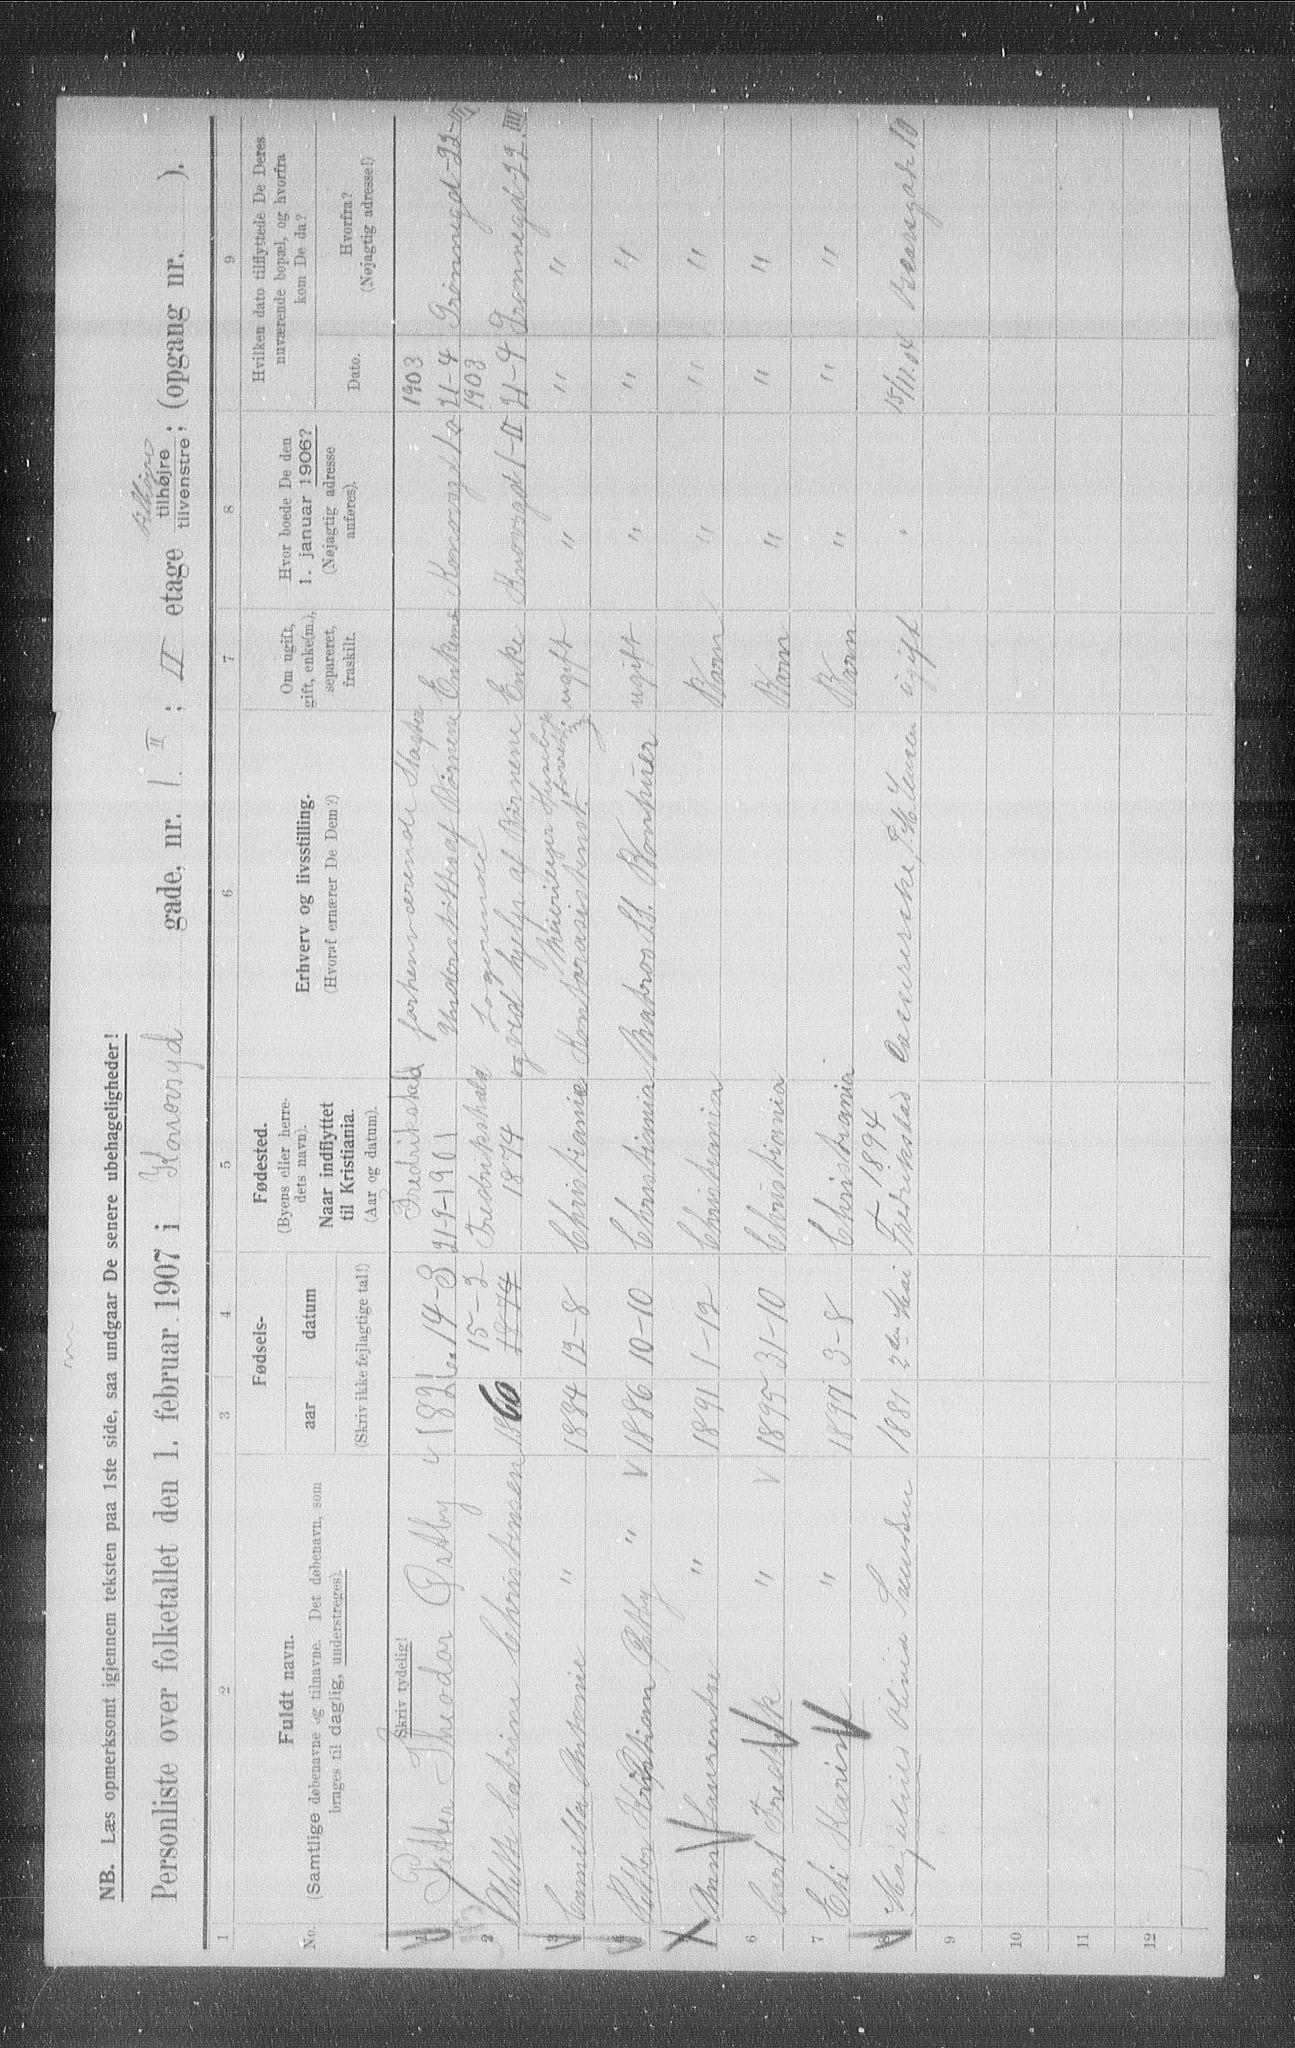 NB. Læs opmerksomt igjennem teksten paa 1ste side, saa undgaar De senere ubehageligheder!
Personliste over folketallet den 1. februar 1907 i Konovsgd gade, nr. 1. II ; II etage tilhøjre tilhøjre tilvenstre ; (opgang nr. ).
1 2 3 4 5 6 7 8 9
No.
Fuldt navn.
(Samtlige døbenavne og tilnavne. Det døbenavn, som
bruges til daglig, understreges).
Fødsels-
aar datum
(Skriv ikke fejlagtige tal!)
Fødested.
(Byens eller herre-
dets navn).
Naar indflyttet
til Kristiania.
(Aar og datum).
Erhverv og livsstilling.
(Hvoraf ernærer De Dem?)
Om ugift,
gift, enke(m.),
separeret,
fraskilt.
Hvor boede De den
1. januar 1906?
(Nøjagtig adresse
anføres).
Hvilken dato tilflyttede De Deres
nuværende bopæl, og hvorfra
kom De da?
Dato.
Hvorfra?
(Nøjagtig adresse!)
Skriv tydelig!
1 Petter Theodor Østby 1826 14-3 Fredrikshald 21-9-1901 forhenværende Slagter Understøttes af Børnene Enkem Konovsgd 1903 21-4 Grønnegd 22 III
2 Catrine Christensen 1860 15-2 1874 Fredrikshald 1874 Logerende og ved hjelp af Børnene Enke Konovsgd 1-II 1903 21-4 Grønnegd 22 III
3 Camilla Antonie " 1884 12-8 Christiania Kontorassistent ugift " " "
4 Petter Kristian Østby " 1886 10-10 Christiania Matros ugift " " "
5 Laurentse " 1891 1-12 Christiania Barn " " "
6 Carl Fredrik " 1895 31-10 Christiania Barn " " "
7 Karin " 1897 3-8 Christiania Barn " " "
8 1881 2den Mai 1894 Fredrikstad ugift " 15/11 04 10
9
10
11
12